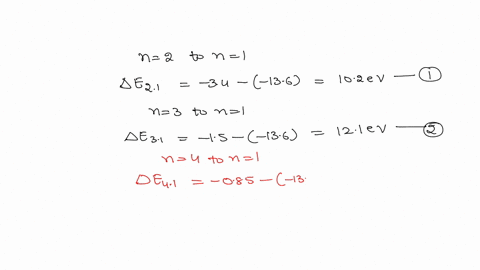 n=2 to n=1
ΔE2.1 = -34 - (-13.6) = 10.2ev — ①
n=3 to n=1
ΔE3.1 = -1.5 - (-13.6) = 12.1ev — ②
n=4 to n=1
ΔE4.1 = -0.85 - (-13.